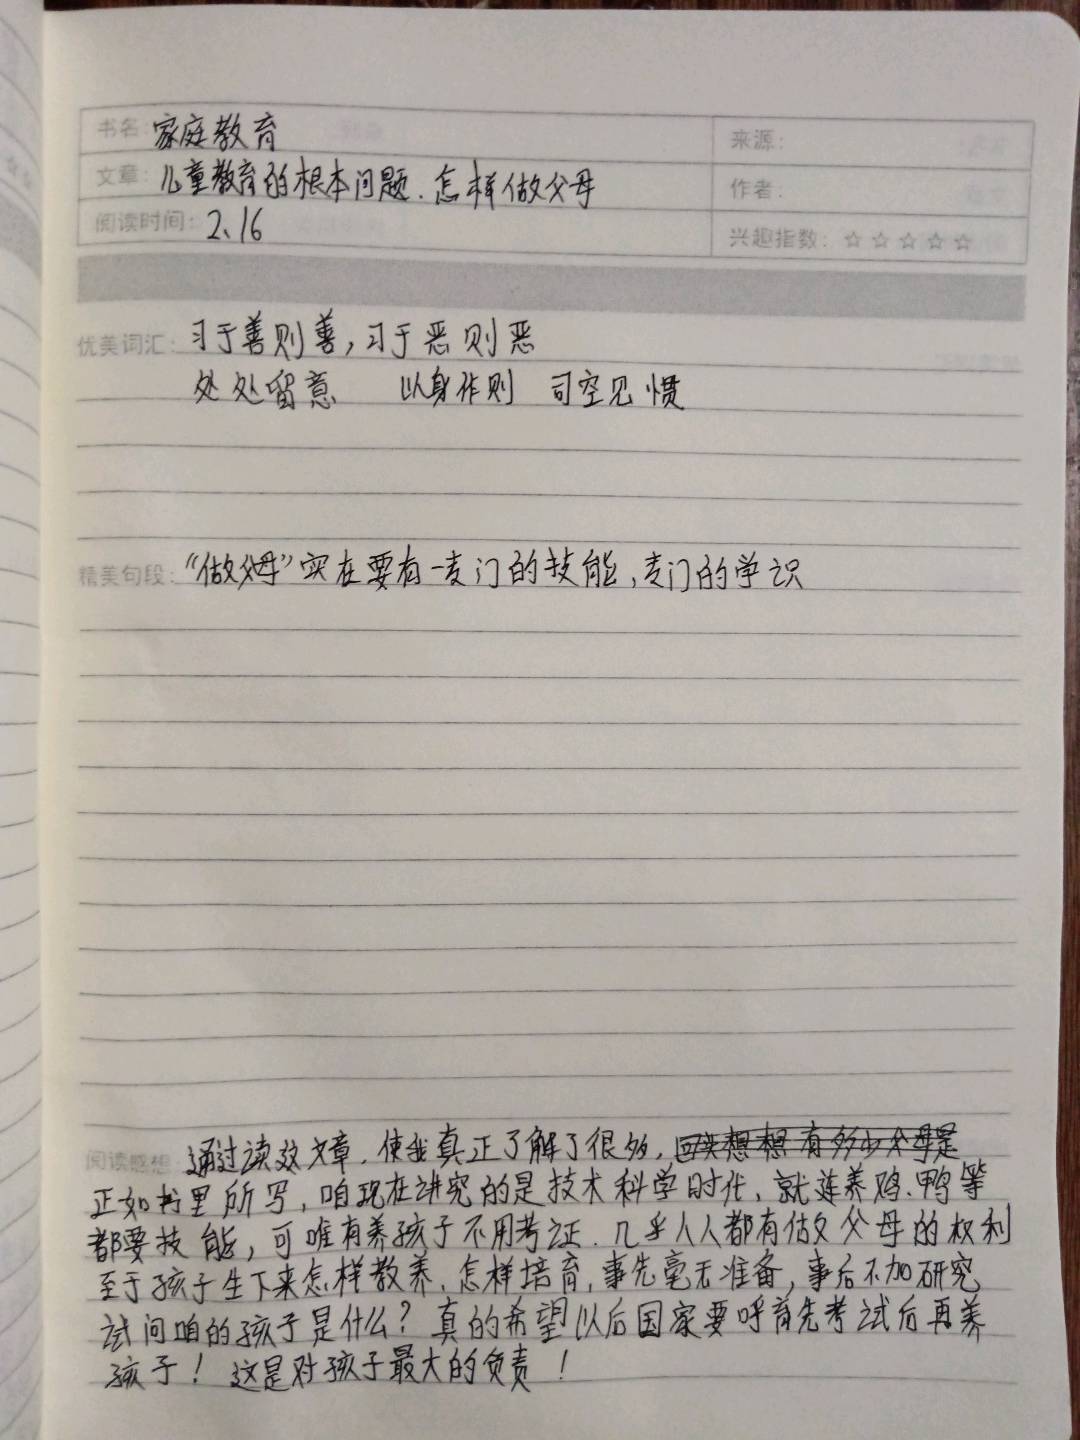 书名: 家庭教育
来源:
文章: 儿童教育的根本问题.怎样做父母
作者:
阅读时间: 2、16
兴趣指数: ☆☆☆☆☆
优美词汇: 习于善则善,习于恶则恶
处处留意 以身作则 司空见惯
精美句段: “做父母”实在要有一专门的技能,专门的学识
阅读感想: 通过读这文章.使我真正了解了很多,回头想想有多少父母是
正如书里所写,咱现在讲究的是技术科学时代、就连养鸡.鸭等
都要技能,可唯有养孩子不用考证.几乎人人都有做父母的权利
至于孩子生下来怎样教养.怎样培育,事先毫无准备,事后不加研究
试问咱的孩子是什么?真的希望以后国家要呼育先考试后再养
孩子!这是对孩子最大的负责!